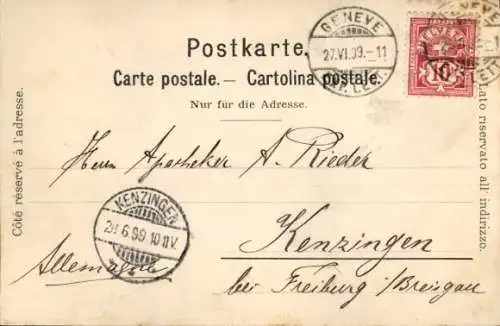 Postkarte.
Carte postale. — Cartolina postale.
Nur für die Adresse.
GENEVE
27.VI.99.–11
EXP. LETT.
HELVETIA
10
Côté réservé à l'adresse.
Lato riservato all' indirizzo.
Herrn Apotheker A. Rieder
KENZINGEN
6.99.10 11V.
Kenzingen
Allemagne
bei Freiburg i/Breisgau